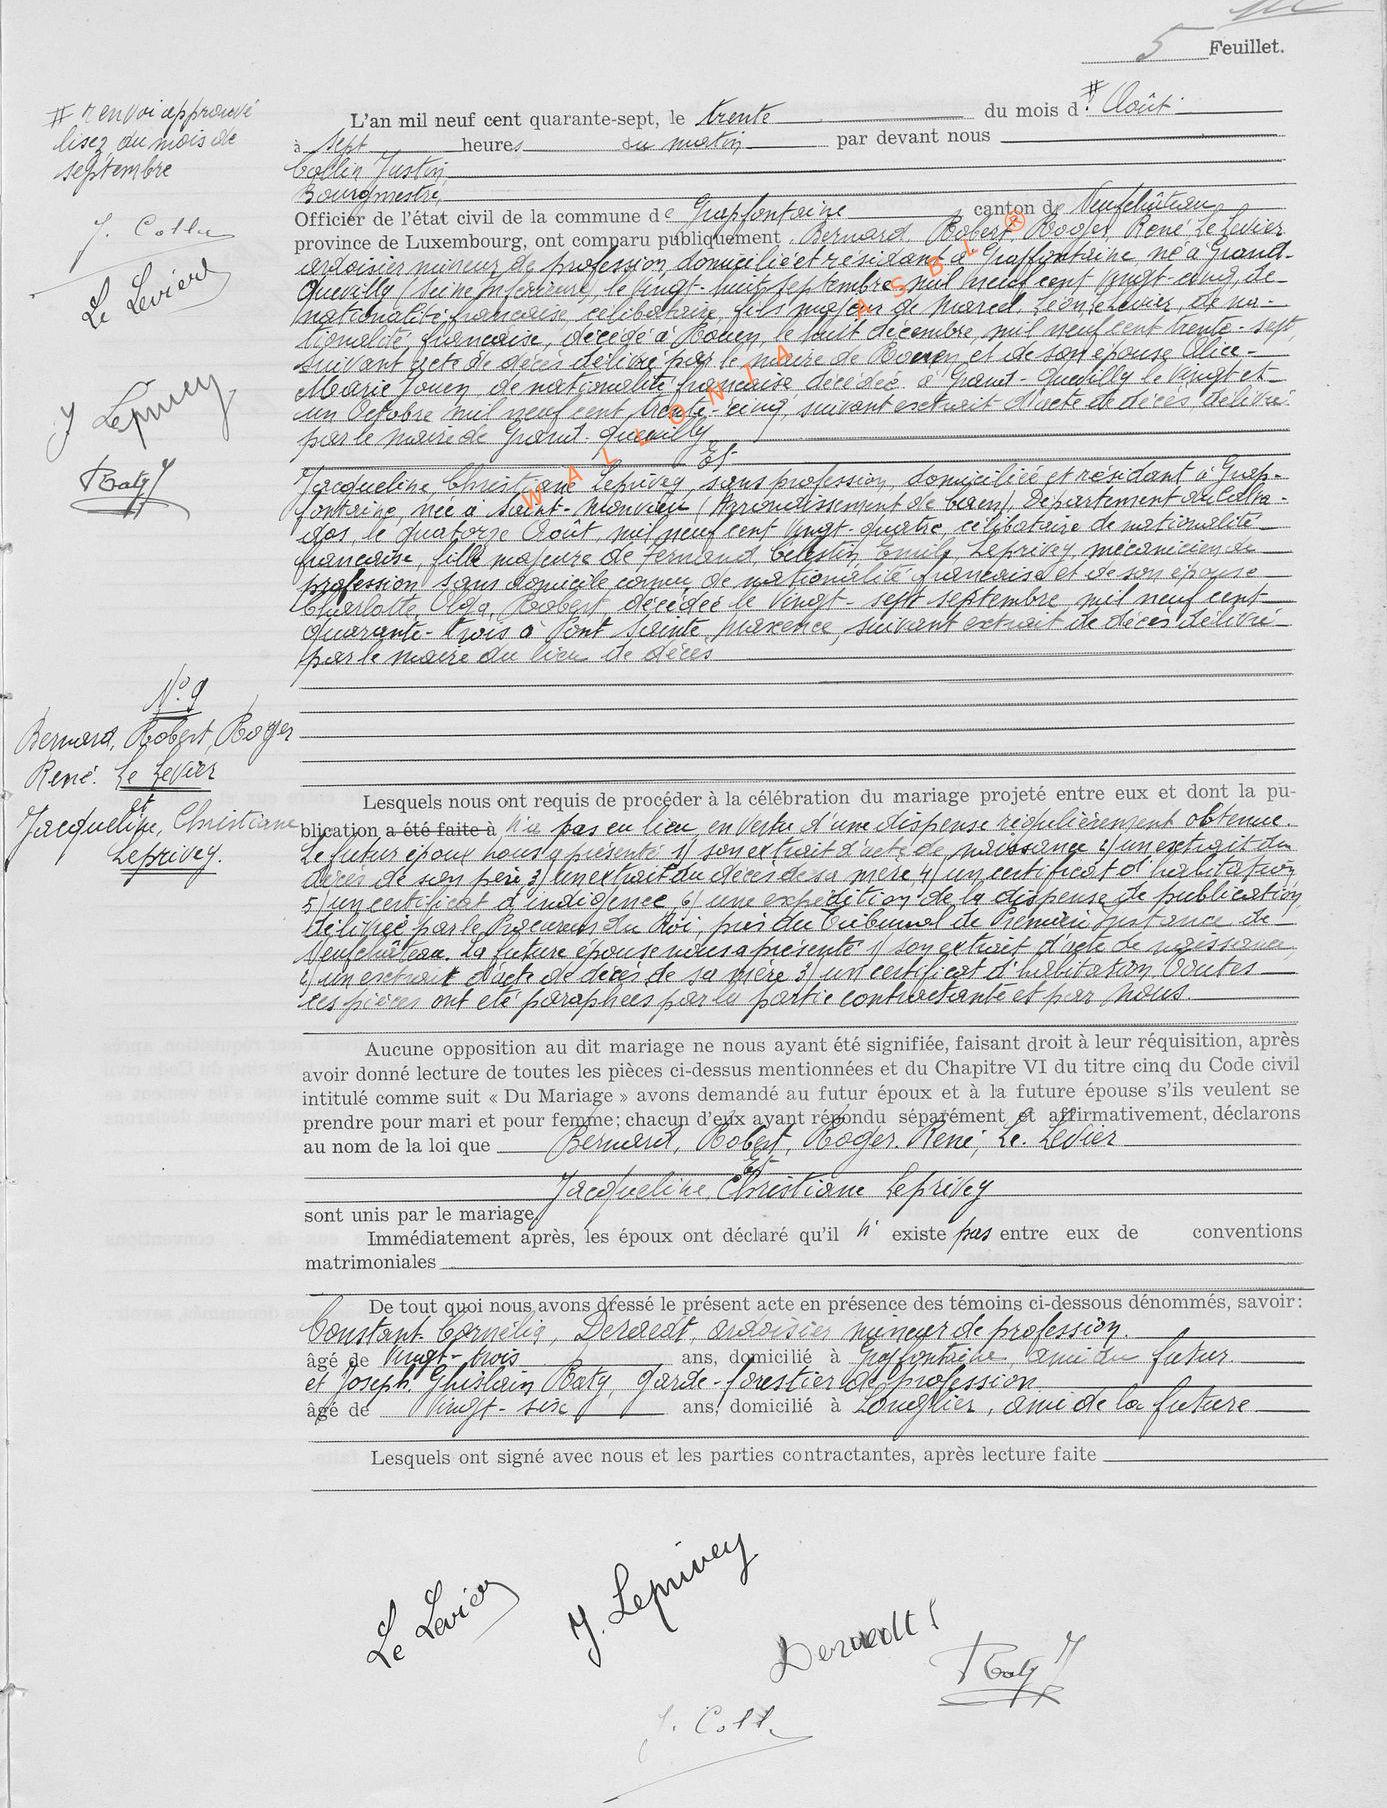 5 Feuillet.
# renvoi approuvé
lisez du mois de
septembre
J. Collin
Le Levier
J Leprivey
Raty J
L'an mil neuf cent quarante-sept, le trente du mois d # Août
à sept heures du matin par devant nous
Collin Justin
Bourgmestre,
Officier de l'état civil de la commune de Grapfontaine canton de Neufchâteau
province de Luxembourg, ont comparu publiquement Bernard Robert, Roger René Le Levier
ardoisier mineur de profession, domicilié et résidant à Graffontaine né à Grand-
Quevilly (Seine Inférieure), le vingt-huit septembre mil neuf cent vingt-cinq, de
nationalité française, célibataire, fils majeur de Marcel, Léon, Le Levier, de na-
tionalité française, décédé à Rouen, le huit décembre, mil neuf cent trente-sept,
suivant acte de décès délivré par le maire de Rouen, et de son épouse Alice-
Marie Jouen de nationalité française décédée à Grand-Quevilly le vingt et
un Octobre mil neuf cent trente-cinq, suivant extrait d'acte de décès, délivré
par le maire de Grand-Quevilly
Et
WALLONIA ASBL ®
Jacqueline, Christiane Leprivey, sans profession, domiciliée et résidant à Grap-
fontaine, née à Saint-Manvieu (Arrondissement de Caen) Département du Calva-
dos, le quatorze Août, mil neuf cent vingt-quatre, célibataire de nationalité
française, fille majeure de Fernand, Célestin, Emile, Leprivey, mécanicien de
profession sans domicile connu, de nationalité française et de son épouse
Charlotte, Olga, Robert, décédée le vingt-sept septembre, mil neuf cent
quarante-trois à Pont Sainte Maxence, suivant extrait de décès délivré
par le maire du lieu de décès
N° 9
Bernard, Robert, Roger
René. Le Levier
et
Jacqueline, Christiane
Leprivey.
Lesquels nous ont requis de procéder à la célébration du mariage projeté entre eux et dont la pu-
blication a été faite à n'a pas eu lieu, en vertu d'une dispense régulièrement obtenue.
Le futur époux nous a présenté 1) son extrait d'acte de naissance 2) un extrait du
décès de son père 3) un extrait du décès de sa mère 4) un certificat d'habitation
5) un certificat d'indigence, 6) une expédition de la dispense de publication
délivrée par le Procureur du Roi, près du Tribunal de Première Instance de
Neufchâteau. La future épouse nous a présenté 1) son extrait d'acte de naissance,
2) un extrait d'acte de décès de sa mère 3) un certificat d'habitation. Toutes
ces pièces ont été paraphées par la partie contractante et par nous.
Aucune opposition au dit mariage ne nous ayant été signifiée, faisant droit à leur réquisition, après
avoir donné lecture de toutes les pièces ci-dessus mentionnées et du Chapitre VI du titre cinq du Code civil
intitulé comme suit « Du Mariage » avons demandé au futur époux et à la future épouse s'ils veulent se
prendre pour mari et pour femme; chacun d'eux ayant répondu séparément et affirmativement, déclarons
au nom de la loi que Bernard, Robert, Roger. René, Le. Levier
Et
Jacqueline, Christiane Leprivey
sont unis par le mariage.
Immédiatement après, les époux ont déclaré qu'il n' existe pas entre eux de conventions
matrimoniales
De tout quoi nous avons dressé le présent acte en présence des témoins ci-dessous dénommés, savoir:
Constant. Cornélis, Deraedt, ardoisier mineur de profession.
âgé de vingt-trois ans, domicilié à Graffontaine, ami du futur
et Joseph. Ghislain Raty, garde-forestier de profession
âgé de vingt-six ans, domicilié à Longlier, ami de la future
Lesquels ont signé avec nous et les parties contractantes, après lecture faite
Le Levier
J. Leprivey
Deraedt
Raty J
J. Collin